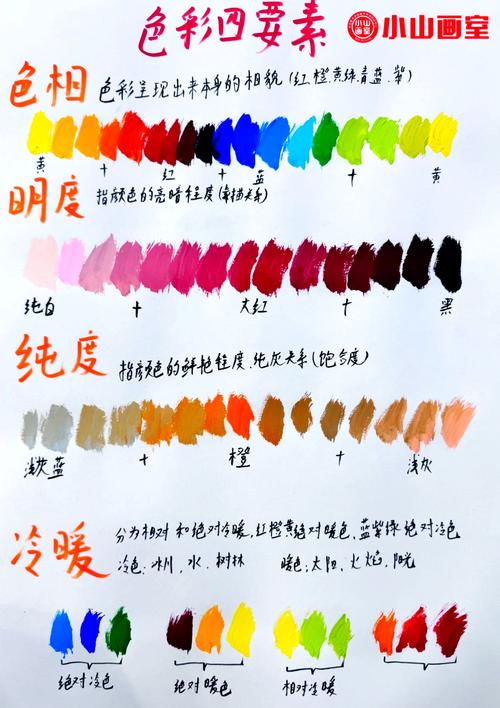 色彩四要素
小山画室
小山画室
色相 色彩呈现出来本身的相貌(红.橙.黄.绿.青.蓝.紫)
黄 + 红 + 蓝 + 黄
明度 指颜色的亮暗程度(素描关系)
纯白 + 大红 + 黑
纯度 指颜色的鲜艳程度.纯灰关系(饱含度)
浅灰蓝 + 橙 + 浅灰
冷暖 分为相对和绝对冷暖,红橙黄绝对暖色,蓝紫绿绝对冷色
冷色:冰川,水,树林 暖色:太阳,火焰,阳光
绝对冷色 绝对暖色 相对冷暖